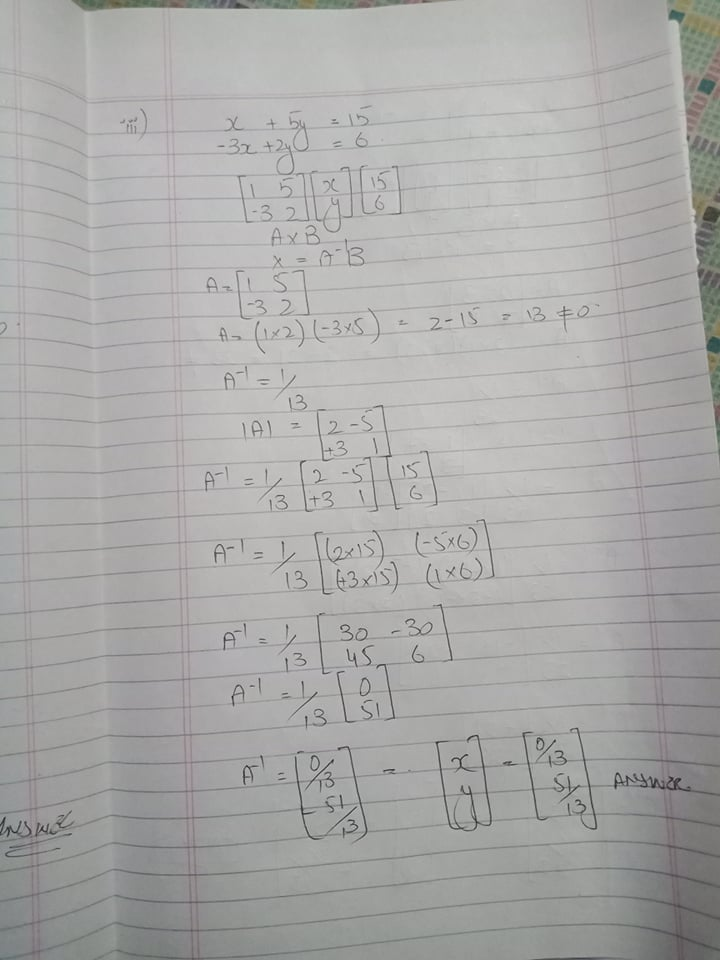 iii) x + 5y = 15
-3x + 2y = 6.
[1 5
-3 2] [x
y] [15
6]
A x B
x = A⁻¹B
A = [1 5
-3 2]
A = (1×2) (-3×5) = 2-15 = 13 ≠ 0
A⁻¹ = 1/13
|A| = [2 -5
+3 1]
A⁻¹ = 1/13 [2 -5
+3 1] [15
6]
A⁻¹ = 1/13 [(2×15) (-5×6)
(+3×15) (1×6)]
A⁻¹ = 1/13 [30 -30
45 6]
A⁻¹ = 1/13 [0
51]
A⁻¹ = [0/13
51/13] = [x
y] = [0/13
51/13] ANSWER
ANSWER